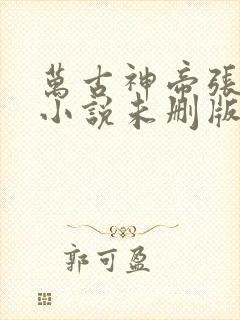 萬古神帝張
小說未刪版
郭可盈